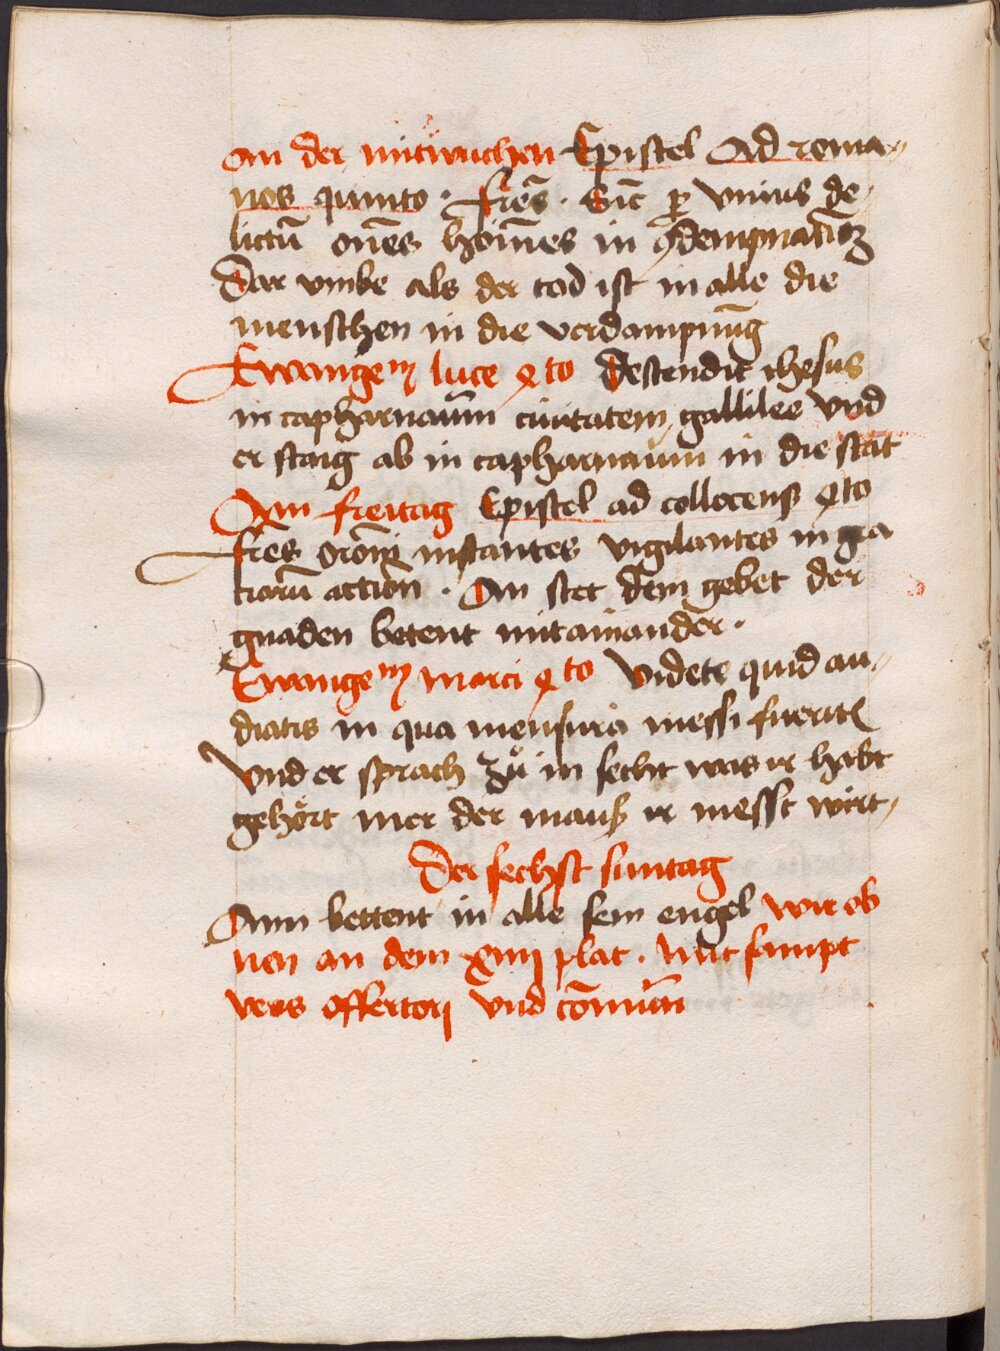 an der mitwuchen Epistel Ad roma-
nos quinto. fres̄. Sic̄ ꝑ vnius de-
lictū om̄es hoīnes in ꝯdempnatōꝫ
Dar vmbe als der tod ist in alle die
menschen in die verdampnūg
Ewangeꝫ luce qto descendit ihesus
in capharnaūm ciuitatem gallilee vnd
er staig ab in capharnaum in die stat
Am freitag Epistel ad collocenß qto
fres orōni instantes vigilantes in gra
tiarū action. An stet dem gebet der
gnaden betent mitainander.
Ewangeꝫ marci qto Videte quid au-
diatis in qua mensura messi fueritꝭ
Vnd er sprach zů in secht was ir habt
gehört mer der mauß ir messt wirt-
Der sechst suntag
Ann bettent in alle sein engel wie ob
nen an dem xiiij plat. mit sampt
vers offertorj vnd cōmūn